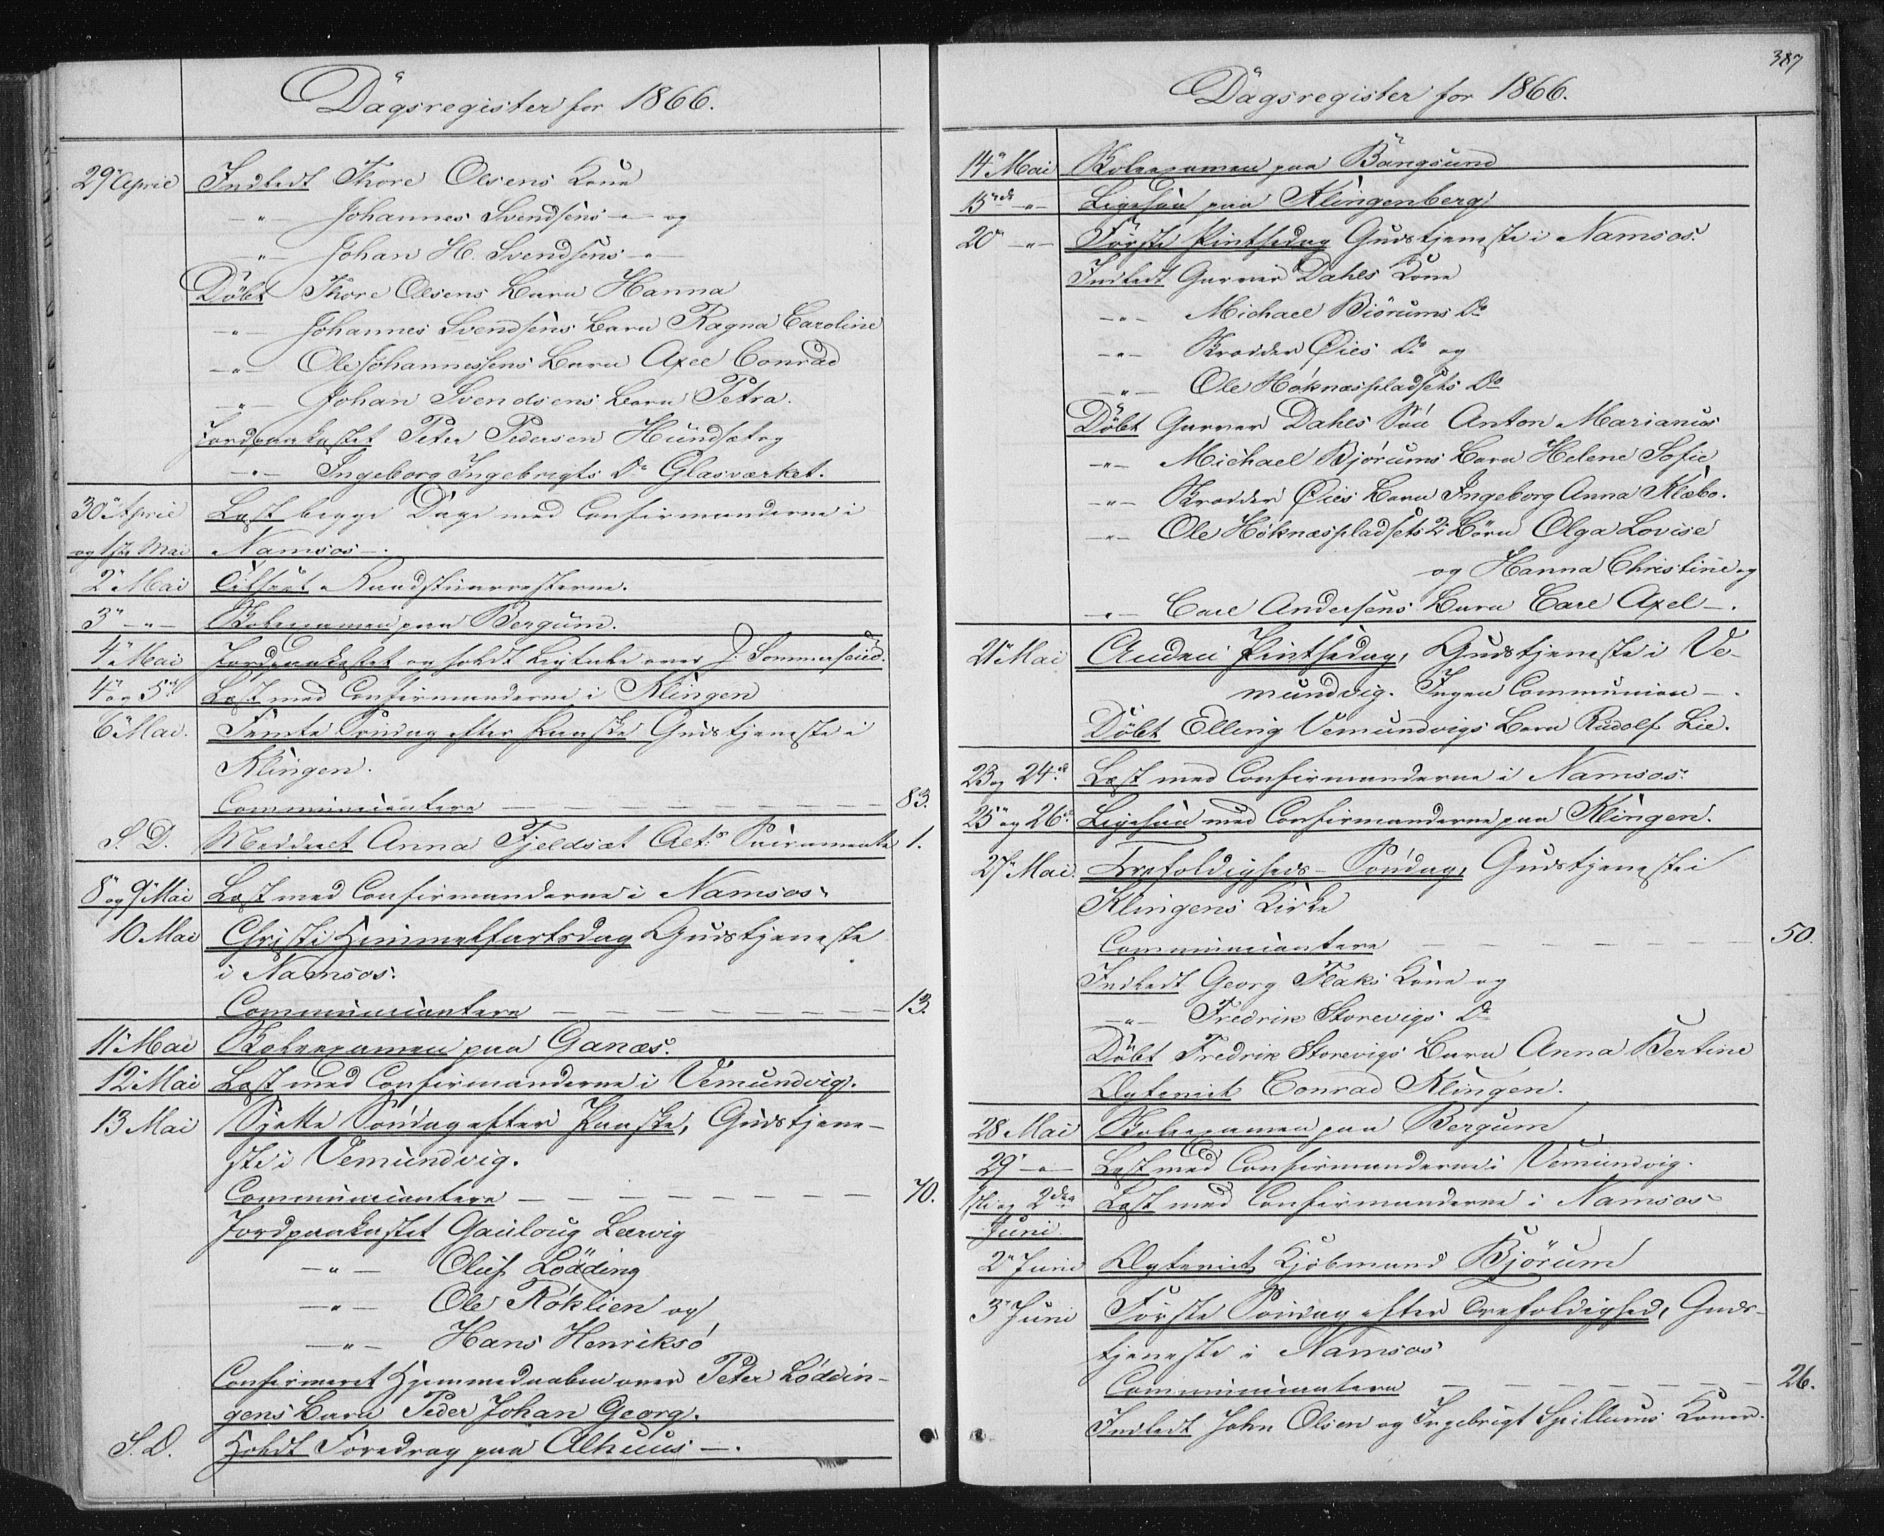 Dagsregister for 1866.
29 April Indledt Thore Olsens Kone
-"- Johannes Svendsens -"- og
-"- Johan H. Svendsens -"-
Döbt Thore Olsens Barn Hanna
-"- Johannes Svendsens Barn Ragna Caroline
-"- Ole Johannessens Barn Axel Conrad
-"- Johan Svendsens Barn Petra.
Jordpaakastet Peter Pedersen Hundsæt og
-"- Ingeborg Ingebrigts Dr Glasværket.
30 April Læst begge Dage med Confirmanderne i
og 1ste Mai Namsos -.
2 Mai Tilseet Raadstuarresterne.
3 -"- Skoleexamen paa Bergum.
4 Mai Jordpaakastet og holdt Ligtale over J. Sommerseied.
4 og 5te Læst med Confirmanderne i Klingen
6 Mai. Femte Söndag efter Paaske Gudstjeneste i
Klingen.
Communicantere — — — — 83.
S. D. Meddeelt Anna Fjeldsæt Alt: Sacramente 1.
8 og 9 Mai Læst med Confirmanderne i Namsos.
10 Mai Christi Himmelfartsdag Gudstjeneste
i Namsos.
Communicantere — — — — 13.
11 Mai Skoleexamen paa Ganæs.
12 Mai Læst med Confirmanderne i Vemundvig.
13 Mai Sjette Söndag efter Paaske, Gudstjene-
ste i Vemundvig.
Communicantere — — — — 70.
Jordpaakastet Gauloug Leervig
-"- Oluf Lödding
-"- Ole Röklien og
-"- Hans Henriksö
Confirmeret Hjemmedaaben over Peter Löddin-
gens Barn Peder Johan Georg.
S. D. Holdt Foredrag paa Alhuus -.
387
Dagsregister for 1866.
14 Mai Skoleexamen paa Bangsund
15de -"- Ligesaa paa Klingenberg
20 -"- Förste Pintsedag Gudstjeneste i Namsos.
Indledt Garver Dahls Kone
-"- Michael Biörums Do
-"- Krodder Öies Do og
-"- Ole Höknæspladsets Do
Döbt Garver Dahls Sön Anton Marianus
-"- Michael Bjórums Barn Helene Sofie
-"- Krodder Öies Barn Ingeborg Anna Klæbo.
-"- Ole Höknæspladsets 2 Börn Olga Lovise
og Hanna Christine og
-"- Carl Andersens Barn Carl Axel -.
21 Mai Anden Pintsedag, Gudstjeneste i Ve-
mundvig. Ingen Communion -.
Döbt Elling Vemundvigs Barn Rudolf Lie.
23 og 24de Læst med Confirmanderne i Namsos.
25 og 26 Ligesaa med Confirmanderne paa Klingen.
27 Mai. Trefoldigheds-Söndag, Gudstjeneste i
Klingens Kirke
Communicantere — — — — 50.
Indledt Georg Flaks Kone og
-"- Fredrik Storevigs Do
Döbt Fredrik Storevigs Barn Anna Bertine
Ægteviet Conrad Klingen.
28 Mai Skoleexamen paa Bergum
29 -"- Læst med Confirmanderne i Vemundvig.
1ste og 2den Læst med Confirmanderne i Namsos
Juni
2 Juni Ægteviet Kjöbmand Bjórum
3 Juni Förste Söndag efter Trefoldighed, Guds-
tjeneste i Namsos
Communicantere — — — — 26.
Indledt John Olsen og Ingebrigt Spillums Koner.